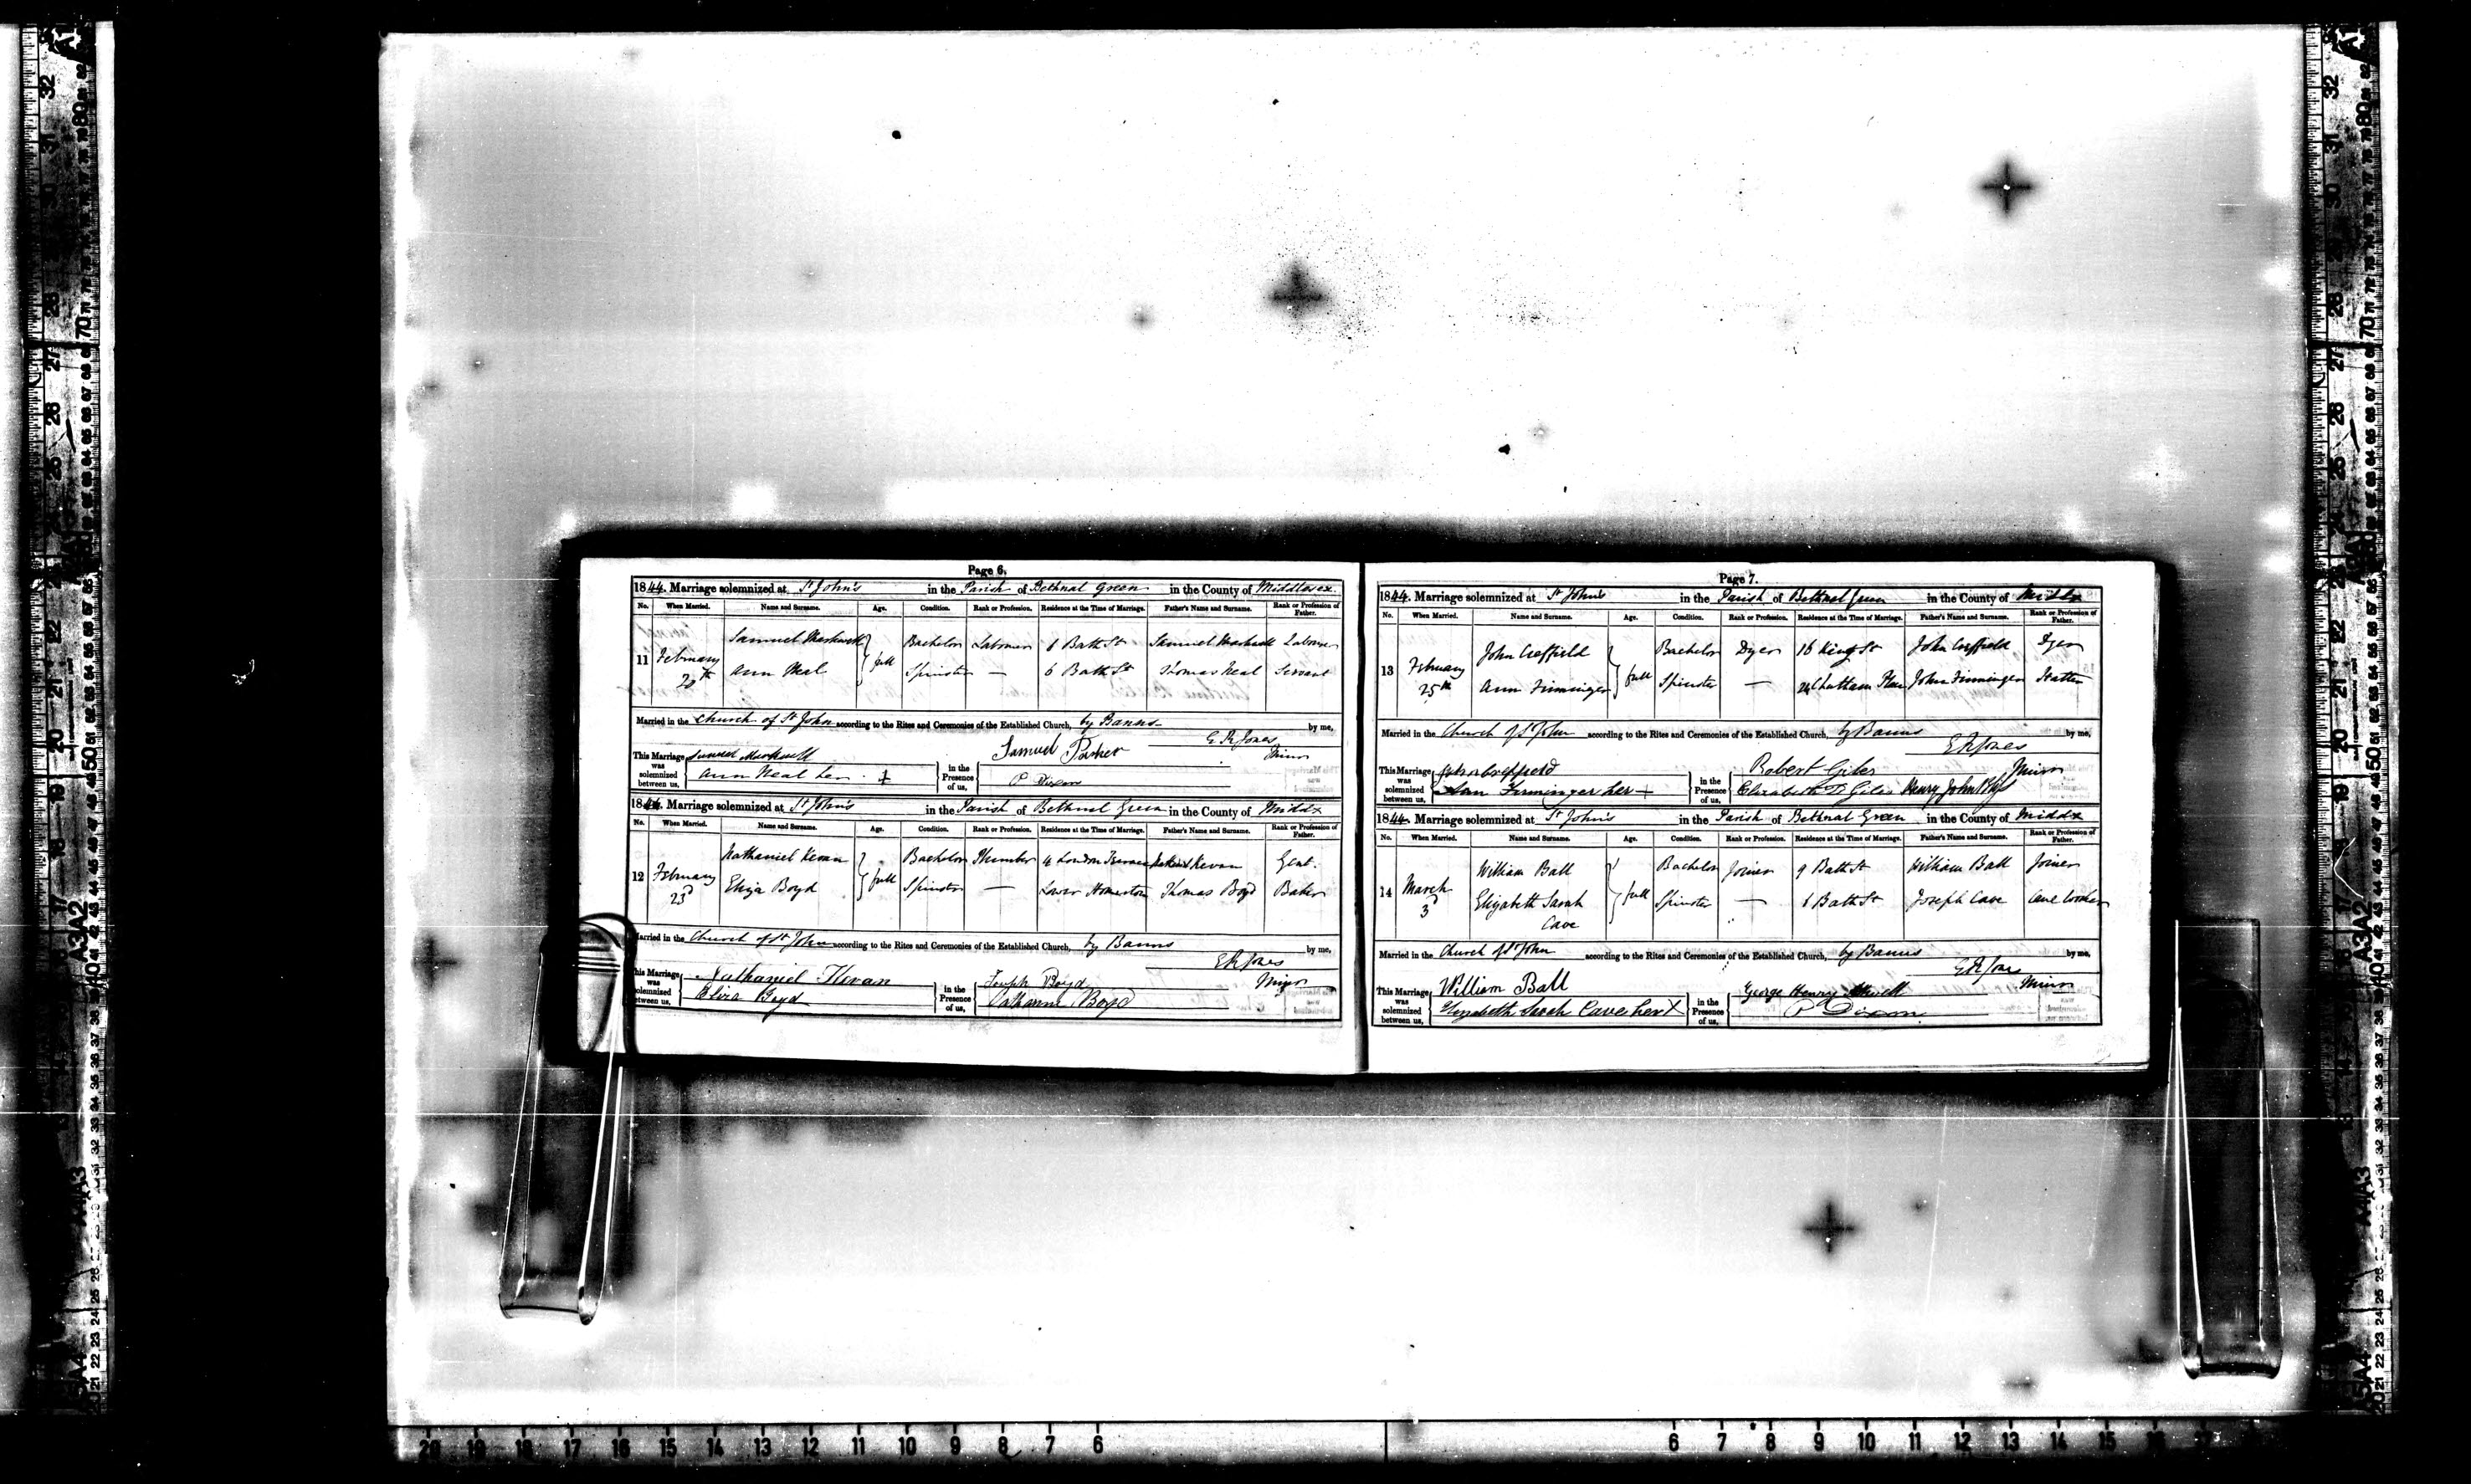 Page 6.
1844. Marriage solemnized at St John's in the Parish of Bethnal Green in the County of Middlesex.
No. When Married. Name and Surname. Age. Condition. Rank or Profession. Residence at the Time of Marriage. Father's Name and Surname. Rank or Profession of Father.
11 February 20th Samuel Markwell full Bachelor Labourer 6 Bath St Samuel Markwell Labourer
Ann Neal Spinster — 6 Bath St Thomas Neal Servant
Married in the Church of St John according to the Rites and Ceremonies of the Established Church, by Banns by me,
E R Jones
Minr
This Marriage was solemnized between us, Samuel Markwell in the Presence of us, Samuel Parker
Ann Neal her + P Dixon
1844. Marriage solemnized at St John's in the Parish of Bethnal Green in the County of Middx
No. When Married. Name and Surname. Age. Condition. Rank or Profession. Residence at the Time of Marriage. Father's Name and Surname. Rank or Profession of Father.
12 February 23d Nathaniel Kevan full Bachelor Plumber 4 London Terrace Kevan Gent.
Eliza Boyd Spinster — Lower Homerton Thomas Boyd Baker
Married in the Church of St John according to the Rites and Ceremonies of the Established Church, by Banns by me,
E R Jones
Minr
This Marriage was solemnized between us, Nathaniel Kevan in the Presence of us, Joseph Boyd
Eliza Boyd Catharine Boyd
Page 7.
1844. Marriage solemnized at St John's in the Parish of Bethnal Green in the County of Middx
No. When Married. Name and Surname. Age. Condition. Rank or Profession. Residence at the Time of Marriage. Father's Name and Surname. Rank or Profession of Father.
13 February 25th John Creffield full Bachelor Dyer 16 King St John Creffield Dyer
Ann Firminger Spinster — 24 Chatham Place John Firminger Hatter
Married in the Church of St John according to the Rites and Ceremonies of the Established Church, by Banns by me,
E R Jones
Minr
This Marriage was solemnized between us, John Creffield in the Presence of us, Robert Giles
Ann Firminger her + Elizabeth Giles Henry John
1844. Marriage solemnized at St John's in the Parish of Bethnal Green in the County of Middx
No. When Married. Name and Surname. Age. Condition. Rank or Profession. Residence at the Time of Marriage. Father's Name and Surname. Rank or Profession of Father.
14 March 3d William Ball full Bachelor Joiner 9 Bath St William Ball Joiner
Elizabeth Sarah Cave Spinster — 6 Bath St Joseph Cave Cane worker
Married in the Church of St John according to the Rites and Ceremonies of the Established Church, by Banns by me,
E R Jones
Minr
This Marriage was solemnized between us, William Ball in the Presence of us, George Henry
Elizabeth Sarah Cave her X P Dixon